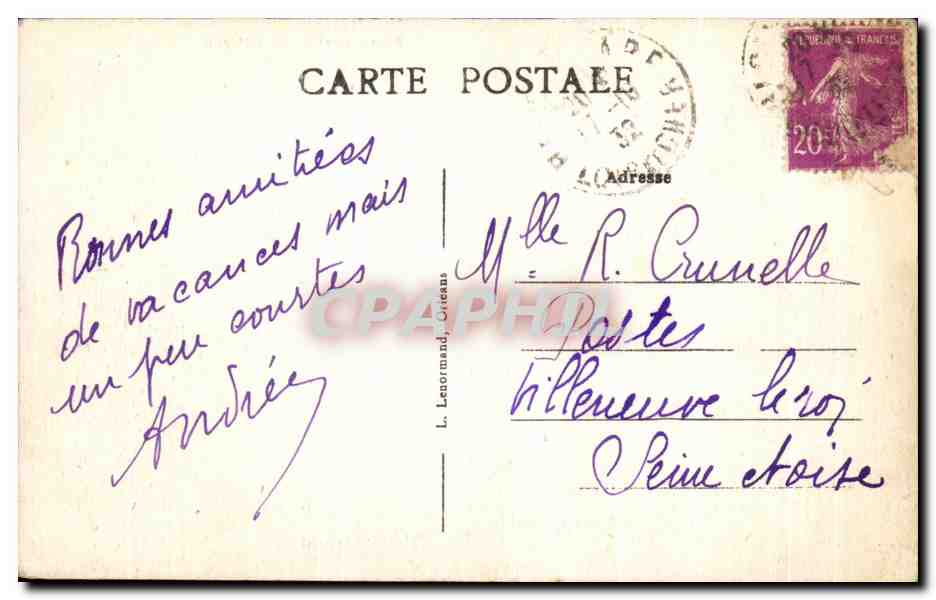 CARTE POSTALE
Bonnes amitiées
de vacances mais
un peu courtes
Andrée
L. Lenormand, Orléans
Adresse
Mlle R. Crunelle
Postes
Villeneuve le roi
Seine et oise
20
32
CPAPHIL